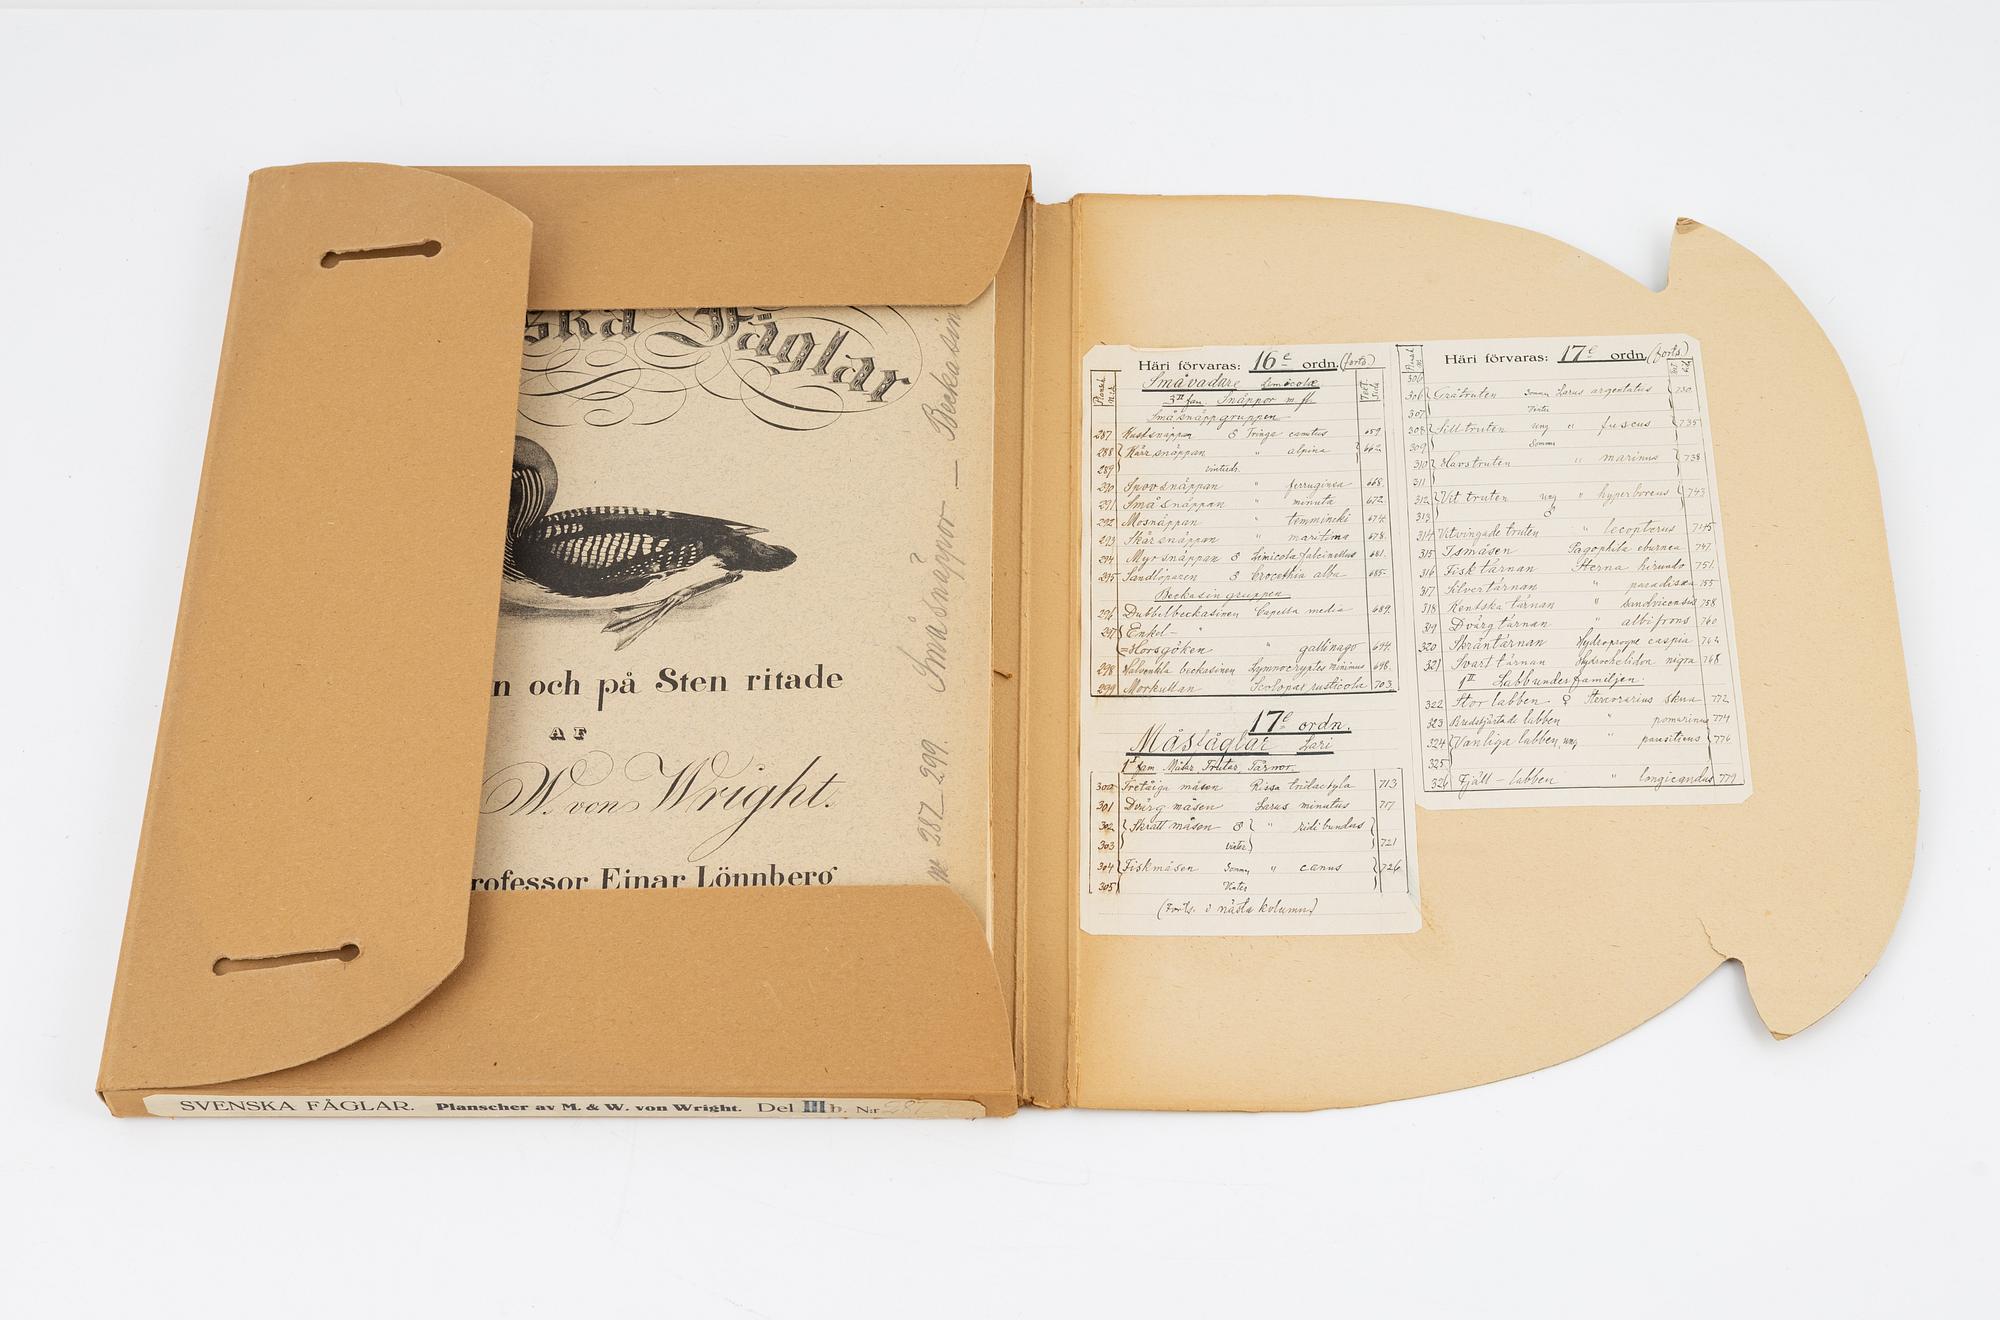 ska Fåglar
n och på Sten ritade
AF
W. von Wright.
rofessor Einar Lönnberg
287–299. Små Snäppor — Beckasin
SVENSKA FÅGLAR. Planscher av M. & W. von Wright. Del III b. N:r 287
Häri förvaras: 16e ordn. (forts.)
Plansch n:r
Text sida
Småvadare Limicolæ
3dje fam. Snäppor m fl
Småsnäppgruppen
287 Kustsnäppan ♂ Tringa canutus 659
288 Kärrsnäppan " alpina 662
289 vinterdr.
290 Spovsnäppan " ferruginea 668.
291 Småsnäppan " minuta 672.
292 Mosnäppan " temmincki 674.
293 Skärsnäppan " maritima 678.
294 Myrsnäppan ♂ Limicola falcinellus 681.
295 Sandlöparen ♂ Crocethia alba 685.
Beckasingruppen
296 Dubbelbeckasinen Capella media 689.
297 Enkel- "
=Horsgöken " gallinago 694.
298 Halvenkla beckasinen Lymnocryptes minimus 698.
299 Morkullan Scolopax rusticola 703.
17e ordn.
Måsfåglar Lari
1sta fam Måsar, Trutar, Tärnor.
300 Tretåiga måsen Rissa tridactyla 713
301 Dvärgmåsen Larus minutus 717
302 Skrattmåsen ♂ " ridibundus
303 vinter 721
304 Fiskmåsen Sommar " canus 726
305 Vinter
(Forts. i nästa kolumn)
Häri förvaras: 17e ordn. (forts.)
306 Gråtruten Sommar Larus argentatus 730
307 Vinter
308 Silltruten ung " fuscus 735
309 Sommar
310 Havstruten " marinus 738
311
312 Vit truten ung " hyperboreus 743
313 ♂
314 Vitvingade truten " leucopterus 745
315 Ismåsen Pagophila eburnea 747.
316 Fisktärnan Sterna hirundo 751.
317 Silvertärnan " paradisæa 755
318 Kentska tärnan " sandvicensis 758
319 Dvärgtärnan " albifrons 760
320 Skräntärnan Hydroprogne caspia 762
321 Svarttärnan Hydrochelidon nigra 768
Labbundesfamiljen.
322 Stor labben ♀ Stercorarius skua 772
323 Bredstjärtade labben " pomarinus 774
324 Vanliga labben, ung " parasiticus 776
325
326 Fjäll-labben " longicaudus 779